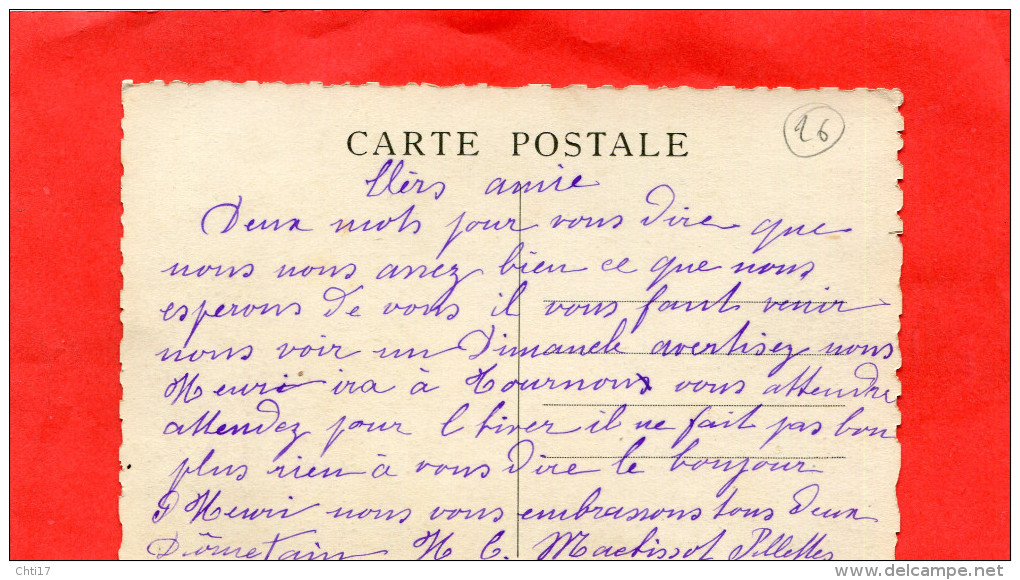 26
CARTE POSTALE
Chèrs amie
Deux mots pour vous dire que
nous nous assez bien ce que nous
esperons de vous il vous faut venir
nous voir un Dimanche avertisez nous
Henri ira à Tournon vous attendre
attendez pour l hiver il ne fait pas bon
plus rien à vous dire le bonjour
D Henri nous vous embrassons tous deux
H C.
Chti17
delcampe.net